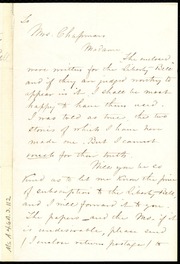 To
Mrs. Chapman
Madame
The enclosed
were written for the Liberty Bell
and if they are judged worthy to
appear in it, I shall be most
happy to have them used.
I was told as true, the two
stories of which I have here
made use. But I cannot
vouch for their truth.
Will you be so
kind as to let me know the price
of subscription to the Liberty Bell
and I will forward it to you.
The papers and this No. if it
is undesirable, please send
(I enclose return postage) to
Ms. A.4.6A.2.82